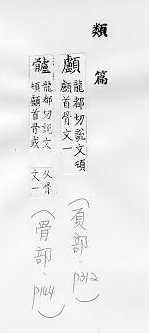 類篇
顱 龍都切説文䪴
顱首骨文一
(頁部.p312)
髗 龍都切説文
䪴顱首骨或
从骨
文一
(骨部.p144)